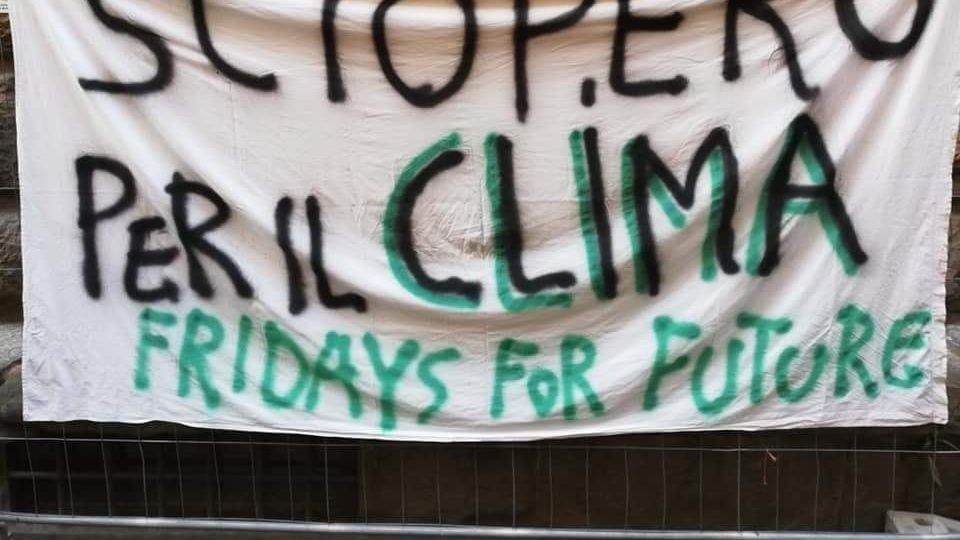 SCIOPERO
PER IL CLIMA
FRIDAYS FOR FUTURE